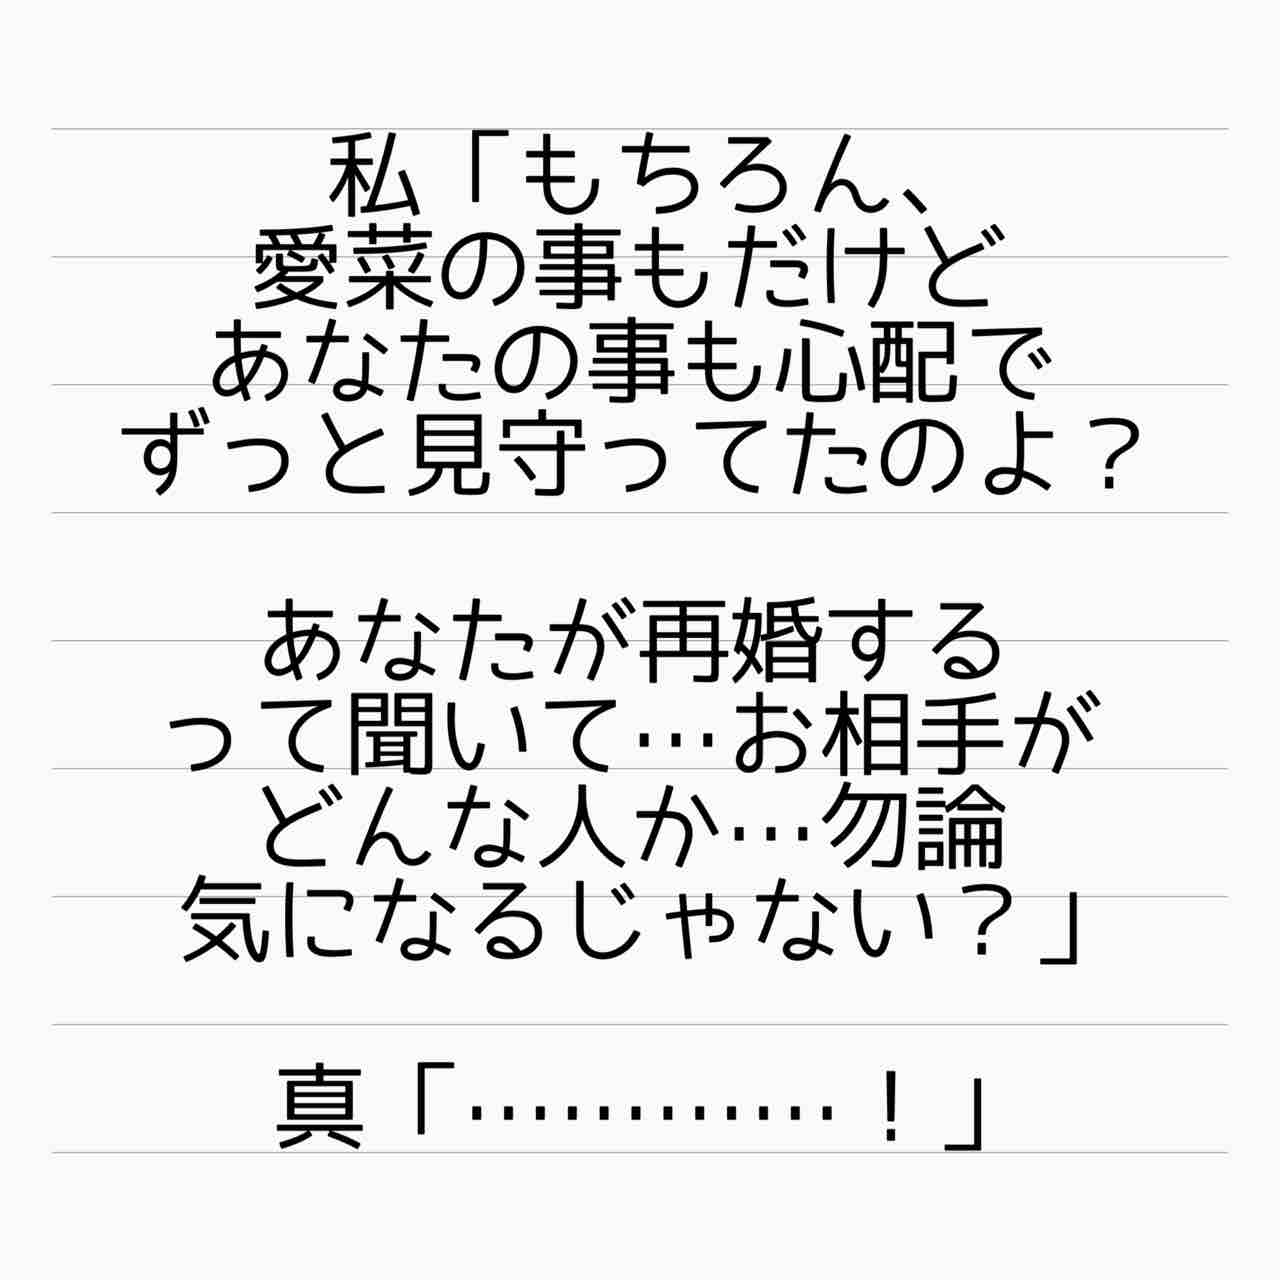 私「もちろん、
愛菜の事もだけど
あなたの事も心配で
ずっと見守ってたのよ？
あなたが再婚する
って聞いて…お相手が
どんな人か…勿論
気になるじゃない？」
真「…………！」